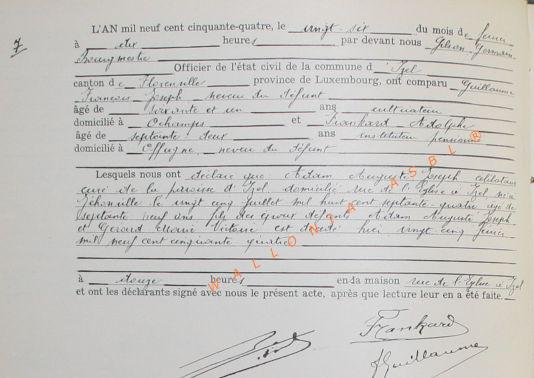 7
L'AN mil neuf cent cinquante-quatre, le vingt-six du mois de février
à dix heures par devant nous Gilson Germain
Bourgmestre
Officier de l'état civil de la commune d'Izel
canton de Florenville province de Luxembourg, ont comparu Guillaume
François Joseph neveu du défunt
âgé de soixante et un ans cultivateur
domicilié à et Frankard Adolphe
âgé de septante deux ans instituteur pensionné
domicilié à Offagne, neveu du défunt
Lesquels nous ont déclaré que Adam Auguste Joseph célibataire
curé de la paroisse d'Izel domicilié rue de l'Eglise à Izel né à
Jéhonville le vingt cinq juillet mil huit cent septante quatre âgé de
septante neuf ans fils des époux défunts Adam Auguste Joseph
et Gérard Marie Victoire est décédé hier vingt cinq février
mil neuf cent cinquante quatre
à douze heures en la maison rue de l'Eglise à Izel
et ont les déclarants signé avec nous le présent acte, après que lecture leur en a été faite.
Frankard
JGuillaume
WALLONIA ASBL ®